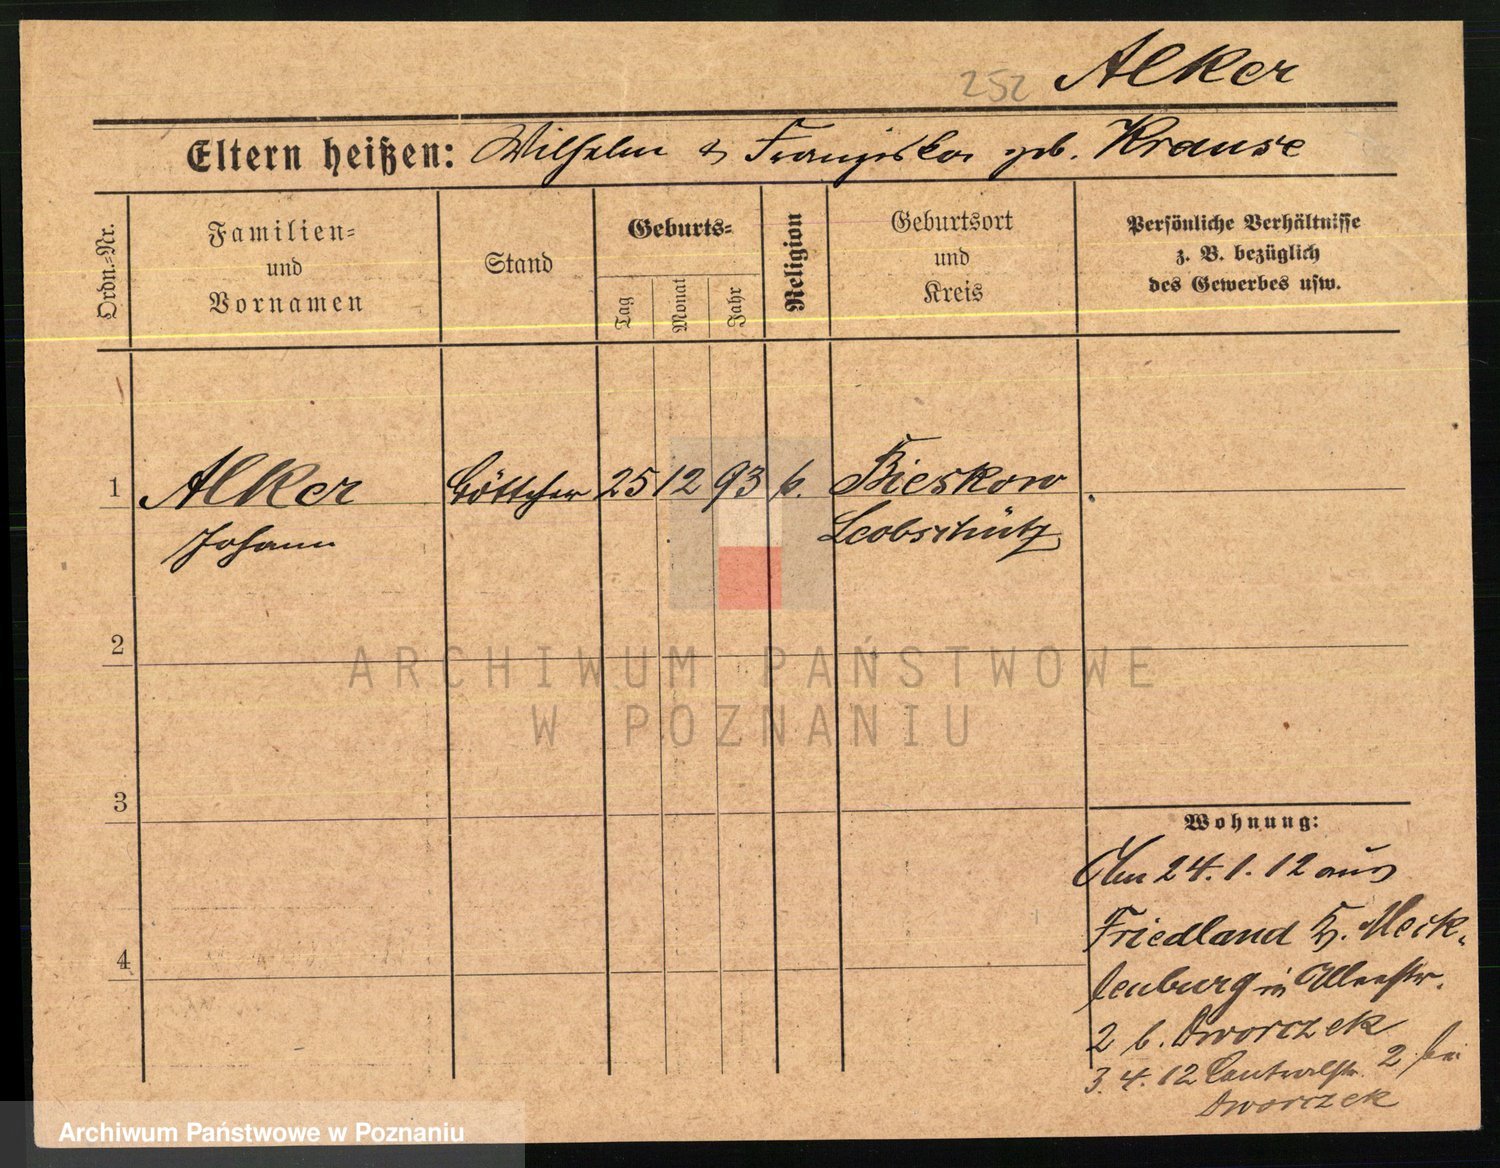 252 Alker
Eltern heißen: Wilhelm & Franziska geb. Krause
Ordn.-Nr.
Familien-
und
Vornamen
Stand
Geburts-
Tag
Monat
Jahr
Religion
Geburtsort
und
Kreis
Persönliche Verhältnisse
z. B. bezüglich
des Gewerbes usw.
1 Alker Böttcher 25 12 93 k. Bieskow
Johann Leobschütz
2
3
4
Wohnung:
Am 24.1.12 aus
Friedland Meck-
lenburg in
2 b. Dworczek
3.4.12 2 bei
Dworczek
ARCHIWUM PAŃSTWOWE
W POZNANIU
Archiwum Państwowe w Poznaniu